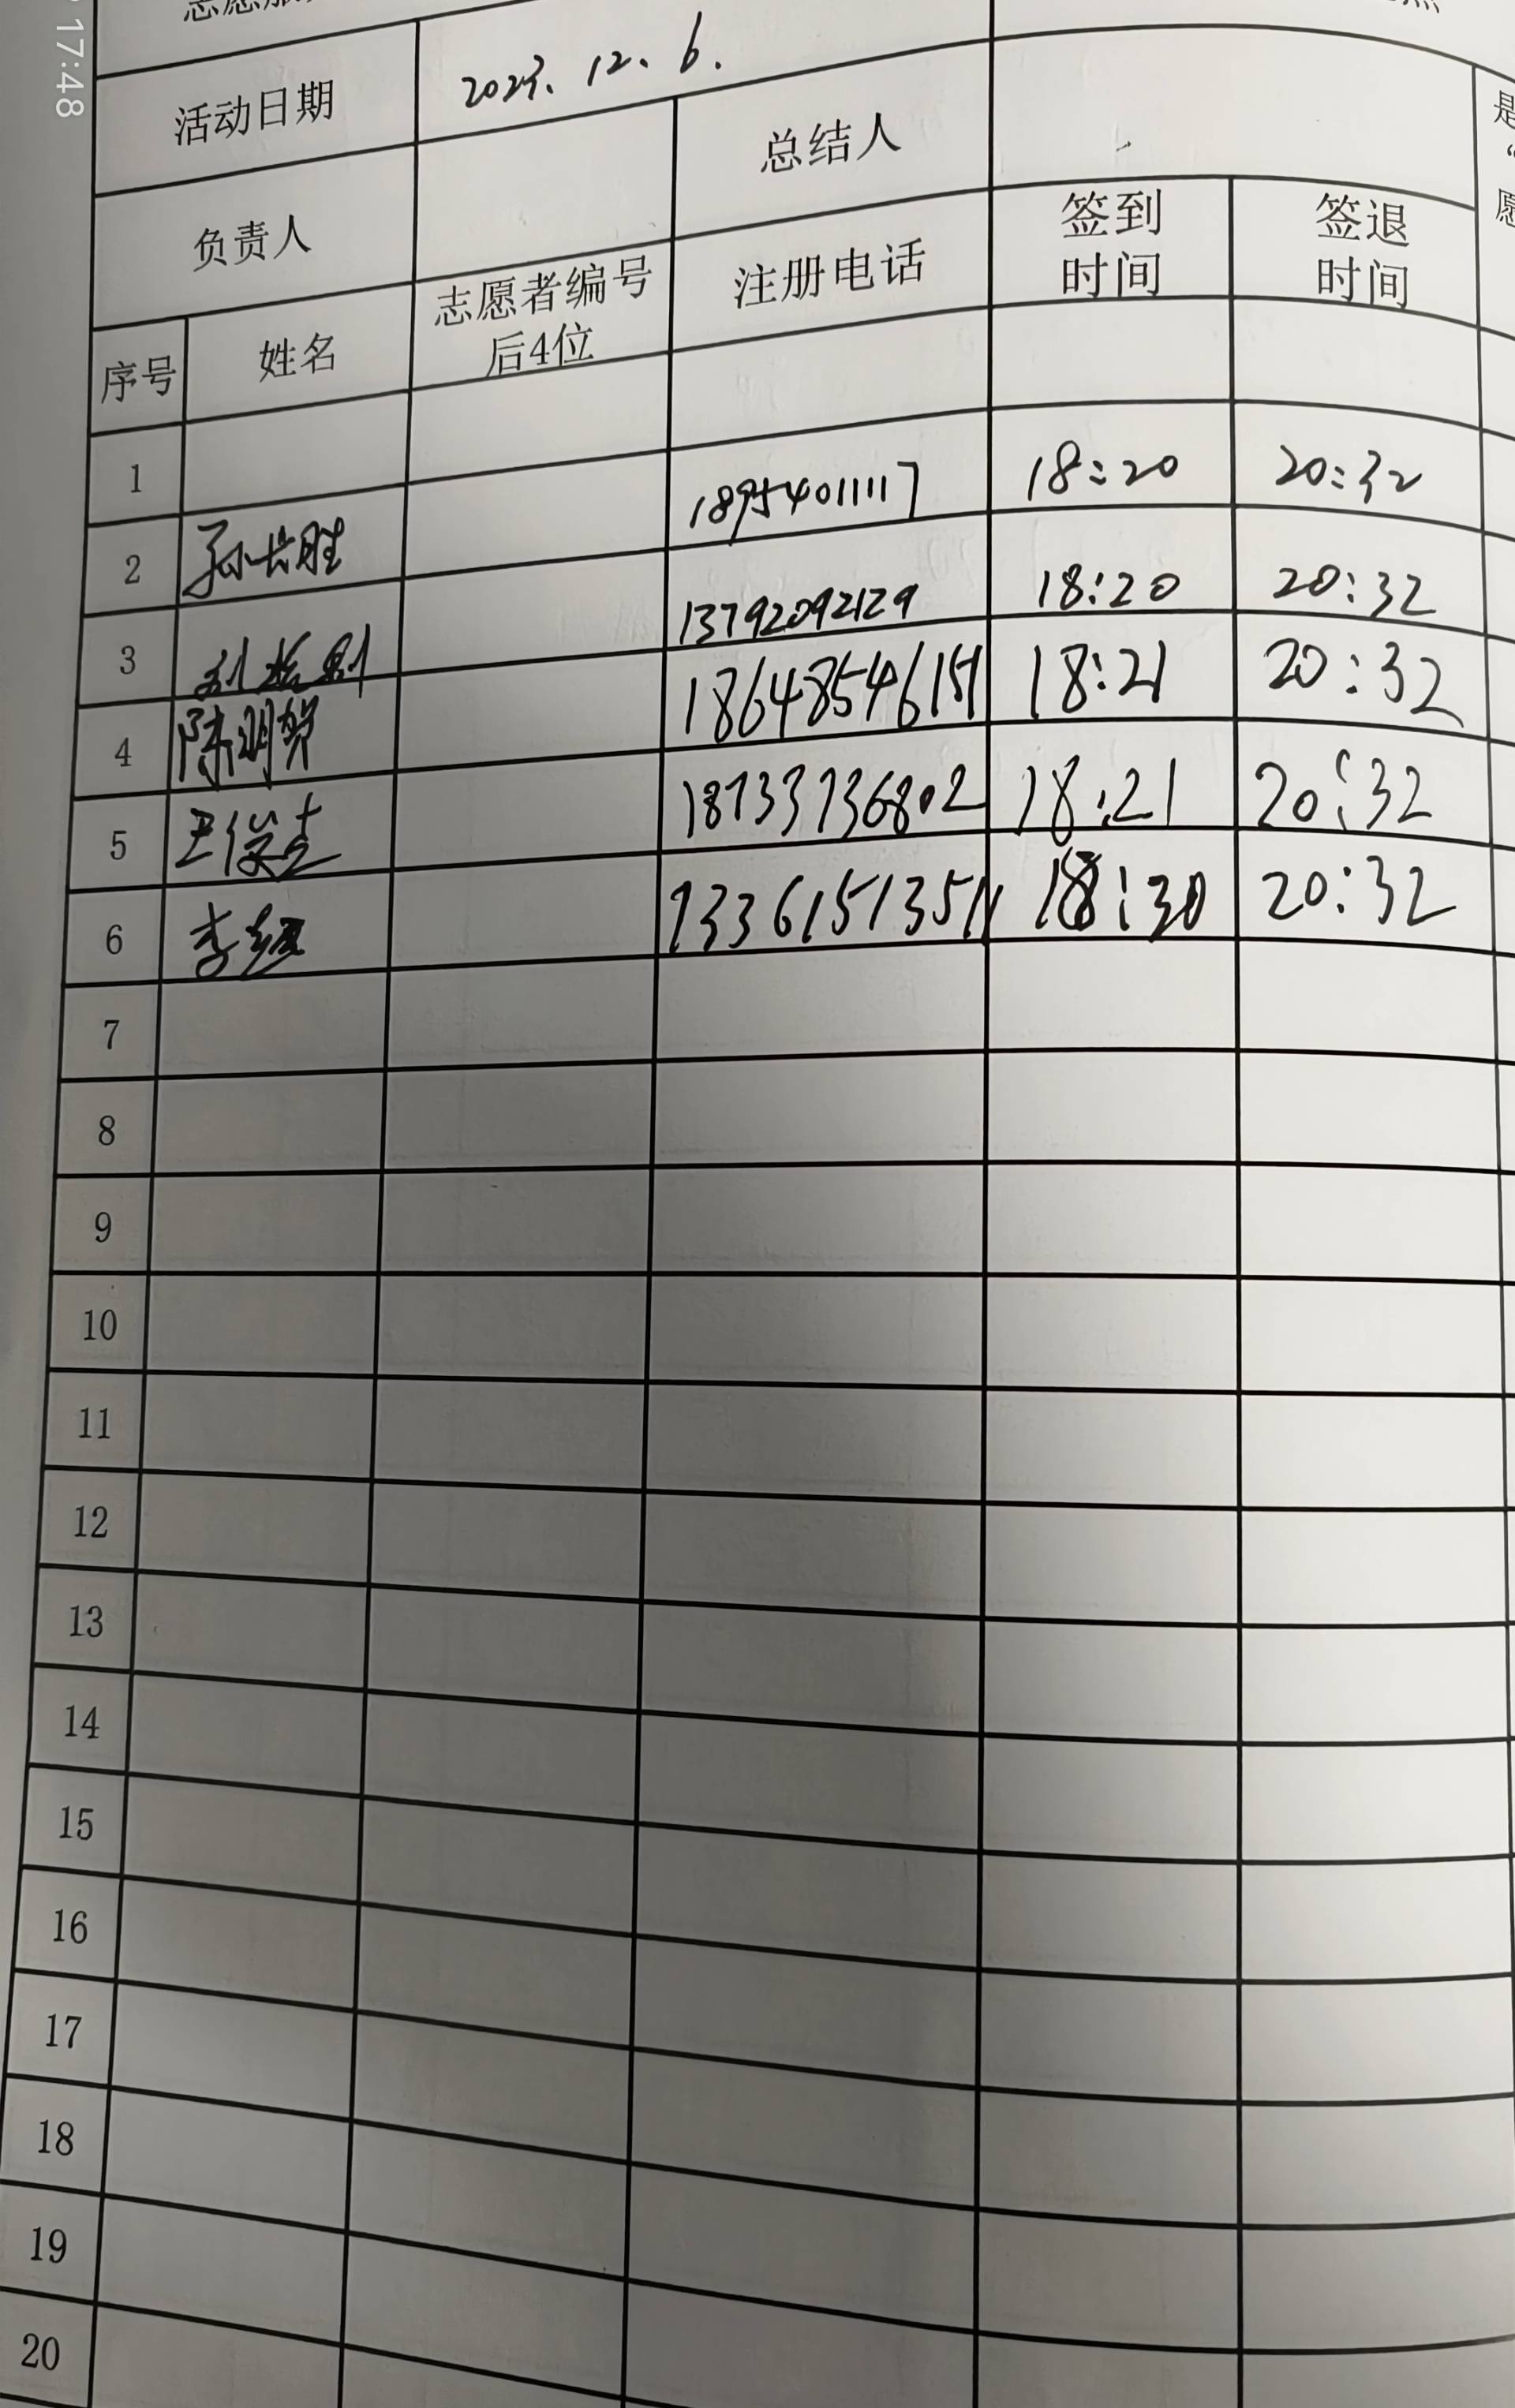 17:48
活动日期 2023.12.6.
负责人 总结人
序号 姓名 志愿者编号后4位 注册电话 签到时间 签退时间
1
2 孙长胜 18954011117 18:20 20:32
3 13792092129 18:20 20:32
4 陈明贺 18648546151 18:21 20:32
5 王俊杰 18733736802 18:21 20:32
6 李 13361513511 18:30 20:32
7
8
9
10
11
12
13
14
15
16
17
18
19
20